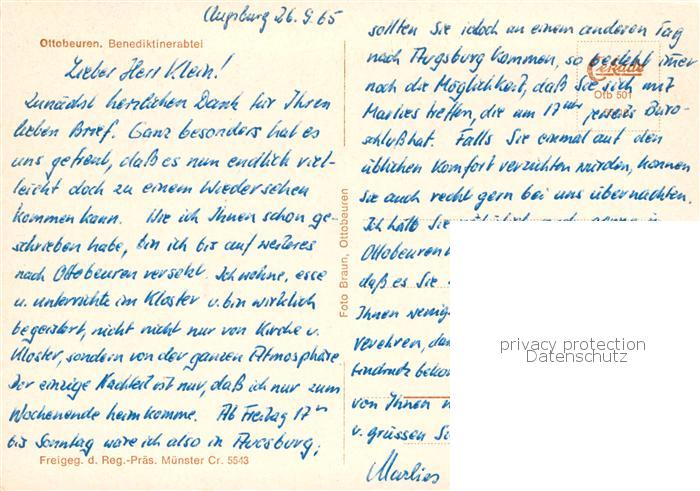 Augsburg 26.9.65
Ottobeuren. Benediktinerabtei
Lieber Herr Klein!
Zunächst herzlichen Dank für Ihren
lieben Brief. Ganz besonders hat es
uns gefreut, daß es nun endlich viel-
leicht doch zu einem Wiedersehen
kommen kann. Wie ich Ihnen schon ge-
schrieben habe, bin ich bis auf weiteres
nach Ottobeuren versetzt. Ich wohne, esse
u. unterrichte im Kloster u. bin wirklich
begeistert, nicht nicht nur von Kirche u.
Kloster, sondern von der ganzen Atmosphäre
Der einzige Nachteil ist nur, daß ich nur zum
Wochenende heimkomme. Ab Freitag 17 h
bis Sonntag wäre ich also in Augsburg,
Freigeg. d. Reg.-Präs. Münster Cr. 5543
Foto Braun, Ottobeuren
sollten Sie jedoch an einem anderen Tag
nach Augsburg kommen, so besteht immer
noch die Möglichkeit, daß Sie sich mit
Marlies treffen, die um 17 Uhr jeweils Büro-
schluß hat. Falls Sie einmal auf den
üblichen Komfort verzichten würden, können
Sie auch recht gern bei uns übernachten.
Ich Sie
Ottobeuren
daß es Sie
Ihnen wenig
verehren,
von Ihnen
u. grüssen
Marlies
Cekade
Otb 501
privacy protection
Datenschutz